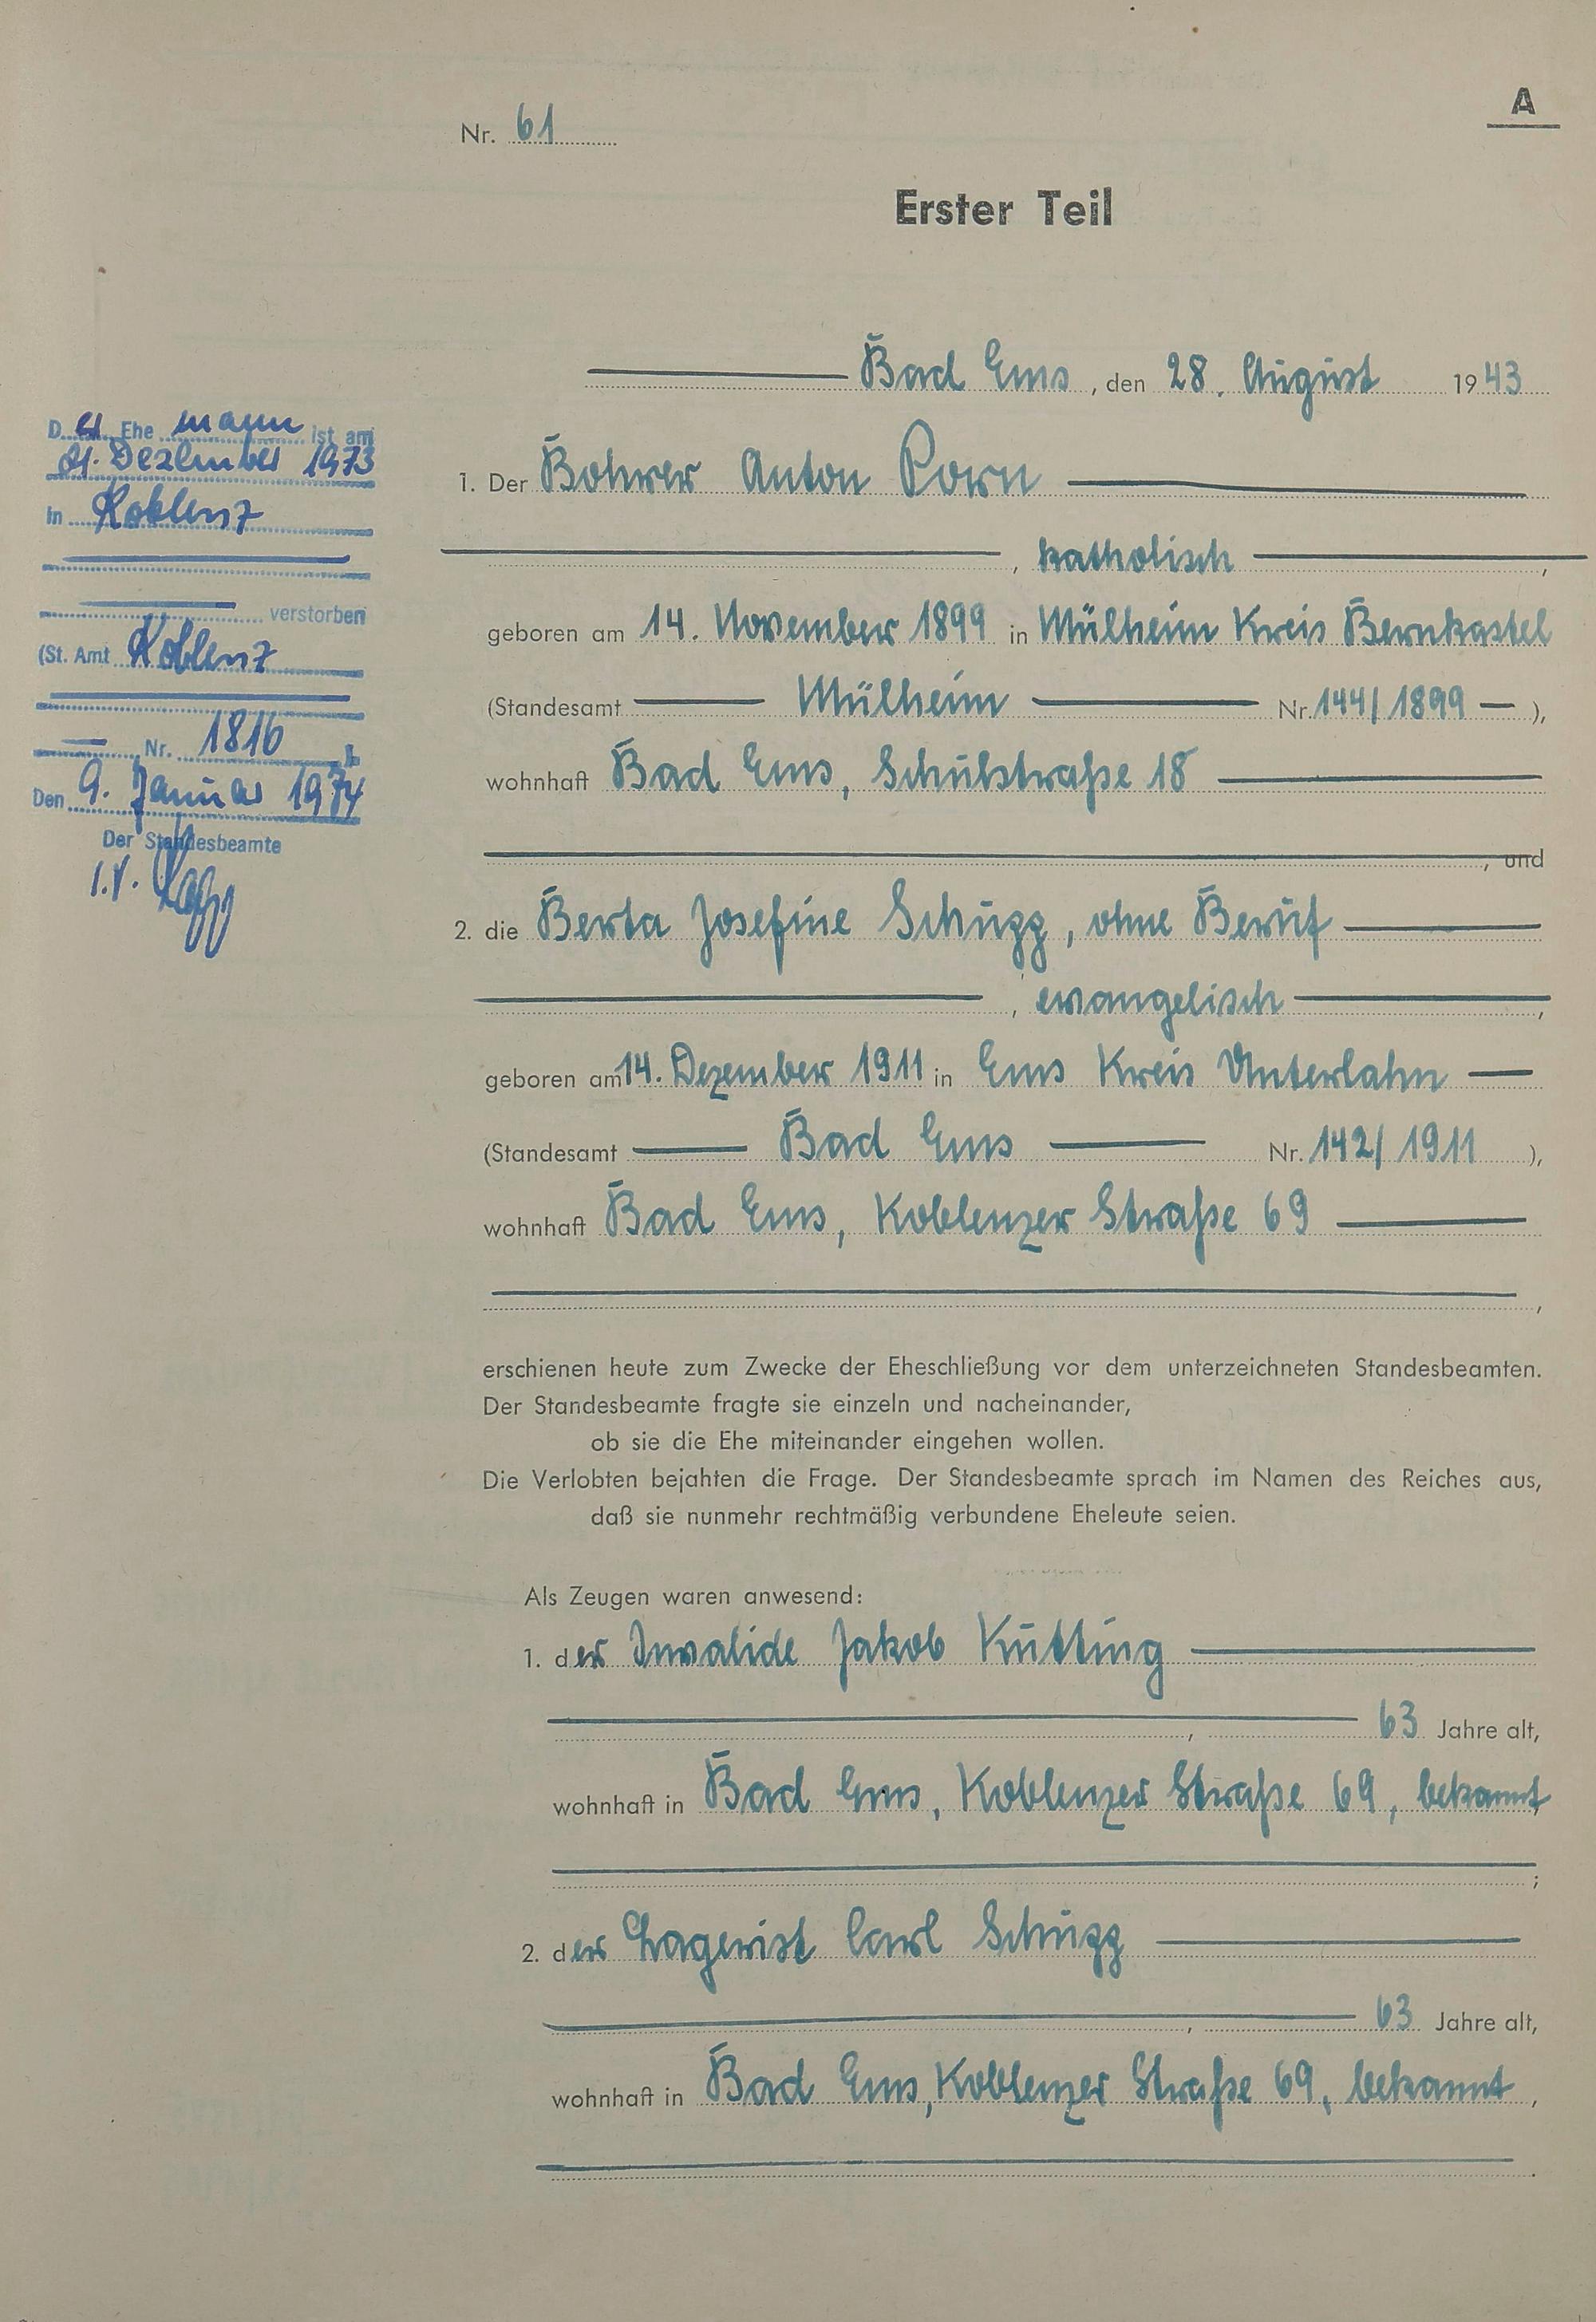 A
Nr. 61
Erster Teil
Bad Ems, den 28. August 1943
1. Der Bohrer Anton Porn
, katholisch,
geboren am 14. November 1899 in Mülheim Kreis Bernkastel
(Standesamt Mülheim Nr. 144/1899 — ),
wohnhaft Bad Ems, Schulstraße 18
, und
2. die Berta Josefine Schugg, ohne Beruf
, evangelisch,
geboren am 14. Dezember 1911 in Ems Kreis Unterlahn —
(Standesamt Bad Ems Nr. 142/1911 ),
wohnhaft Bad Ems, Koblenzer Straße 69
,
erschienen heute zum Zwecke der Eheschließung vor dem unterzeichneten Standesbeamten.
Der Standesbeamte fragte sie einzeln und nacheinander,
ob sie die Ehe miteinander eingehen wollen.
Die Verlobten bejahten die Frage. Der Standesbeamte sprach im Namen des Reiches aus,
daß sie nunmehr rechtmäßig verbundene Eheleute seien.
Als Zeugen waren anwesend:
1. der Invalide Jakob Kutting
, 63 Jahre alt,
wohnhaft in Bad Ems, Koblenzer Straße 69, bekannt
;
2. der Lagerist Carl Schugg
, 63 Jahre alt,
wohnhaft in Bad Ems, Koblenzer Straße 69, bekannt,
.
Der Ehemann ist am
Dezember 1973
in Koblenz
verstorben
(St. Amt Koblenz
Nr. 1816
Den 9. Januar 1974
Der Standesbeamte
I.V.